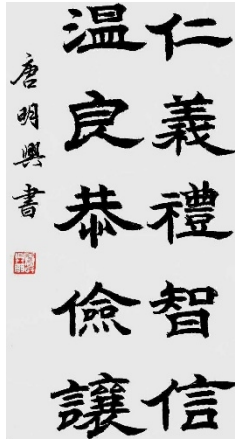 仁義禮智信
温良恭儉讓
唐明興書